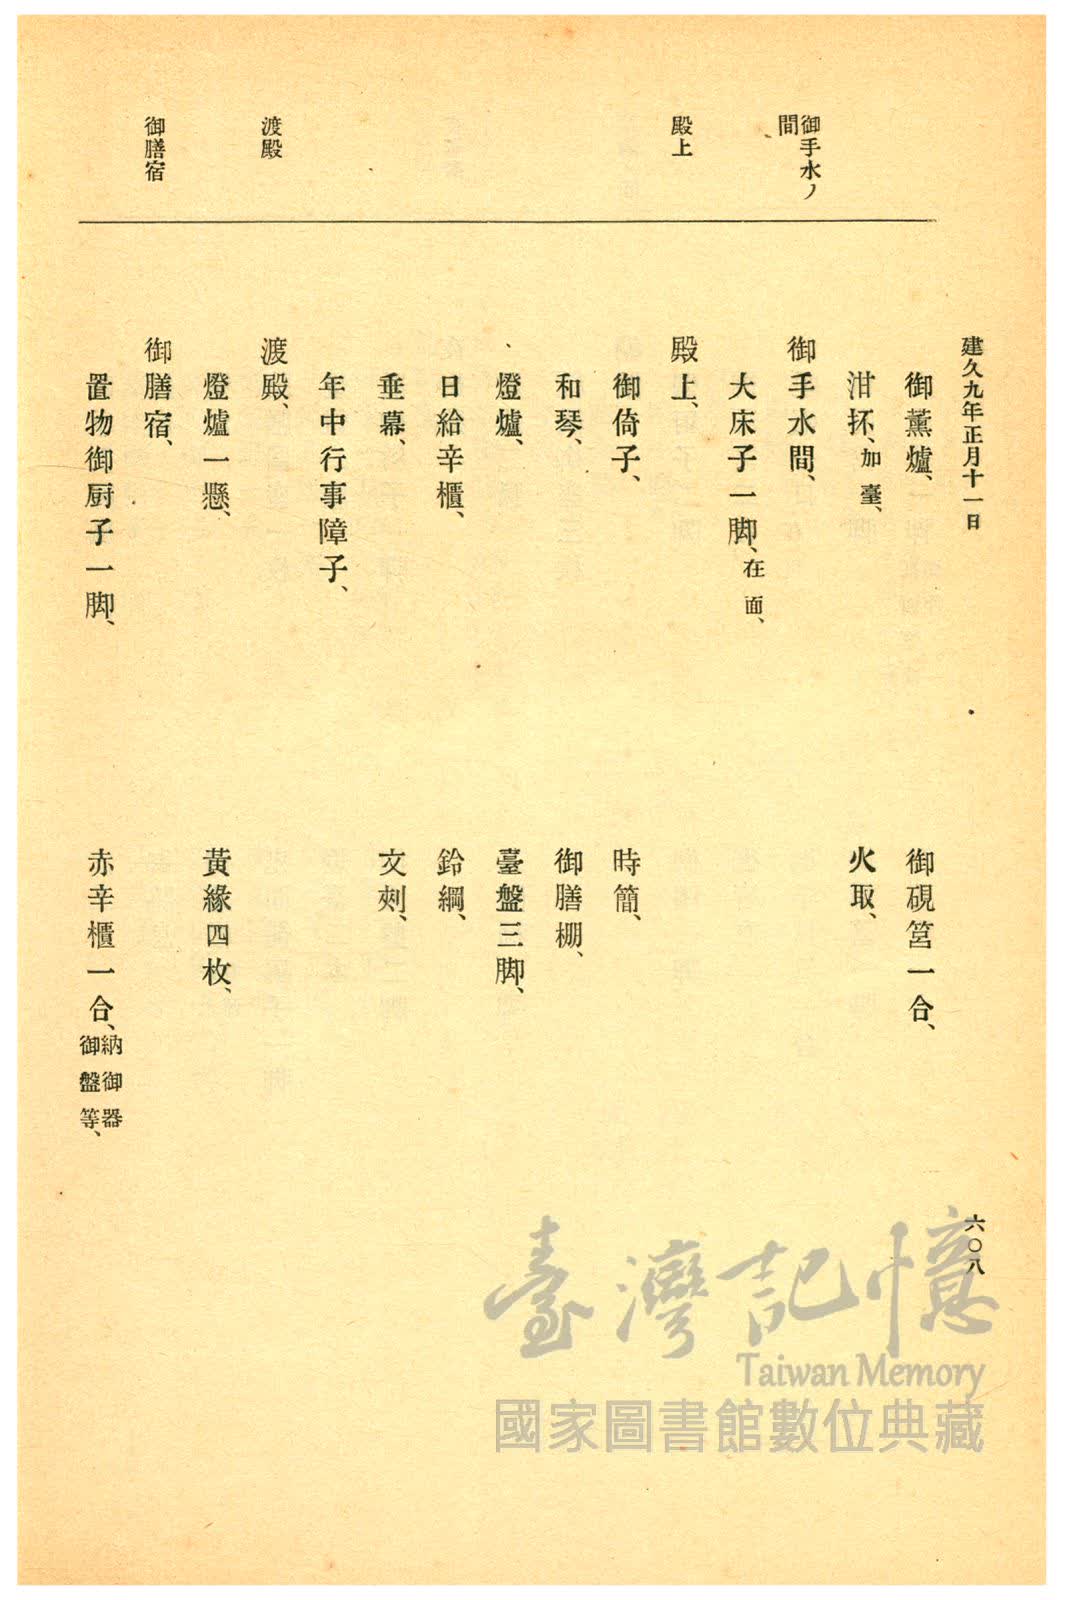 建久九年正月十一日
六〇八
御手水ノ
間
殿上
渡殿
御膳宿
御薫爐、
御硯筥一合、
泔抔、加臺、
火取、
御手水間、
大床子一脚、在面、
殿上、
御倚子、
時簡、
和琴、
御膳棚、
燈爐、
臺盤三脚、
日給辛櫃、
鈴綱、
垂幕、
文刺、
年中行事障子、
渡殿、
燈爐一懸、
黃緣四枚、
御膳宿、
置物御厨子一脚、
赤辛櫃一合、納御器
御盤等、
臺灣記憶
Taiwan Memory
國家圖書館數位典藏